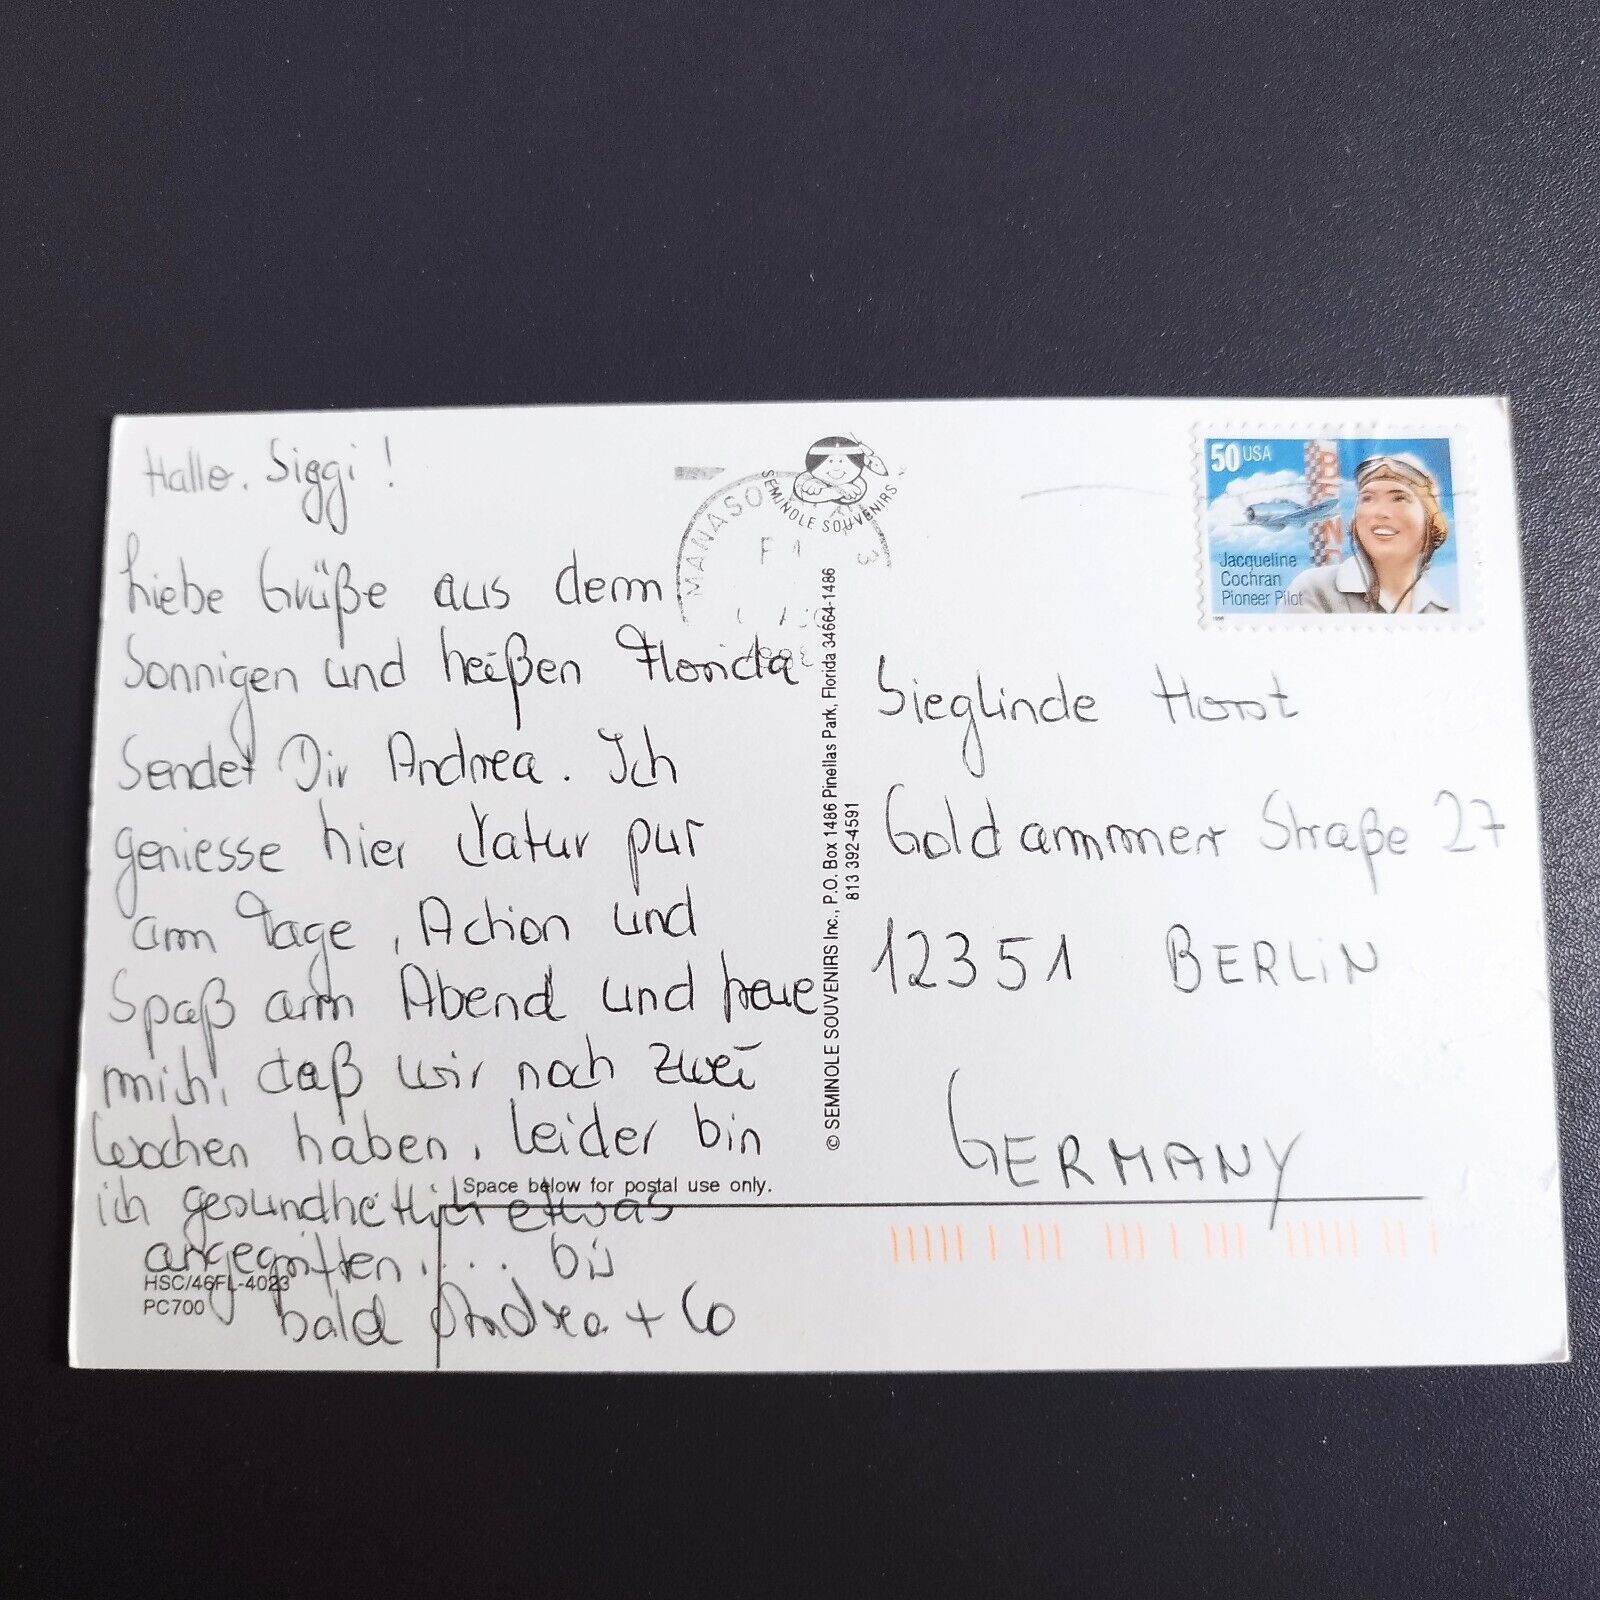 Hallo, Siggi!
Liebe Grüße aus dem
Sonnigen und heißen Florida
Sendet Dir Andrea. Ich
geniesse hier Natur pur
am Tage, Action und
Spaß am Abend und freue
mich, daß wir noch zwei
Wochen haben, leider bin
ich gesundheitlich etwas
angegriffen.... bis
bald Andrea + Co
HSC/46FL-4023
PC700
Space below for postal use only.
MANASO
SEMINOLE SOUVENIRS
© SEMINOLE SOUVENIRS Inc., P.O. Box 1486 Pinellas Park, Florida 34664-1486
813 392-4591
50 USA
Jacqueline
Cochran
Pioneer Pilot
Sieglinde Horst
Goldammer Straße 27
12351 BERLIN
GERMANY